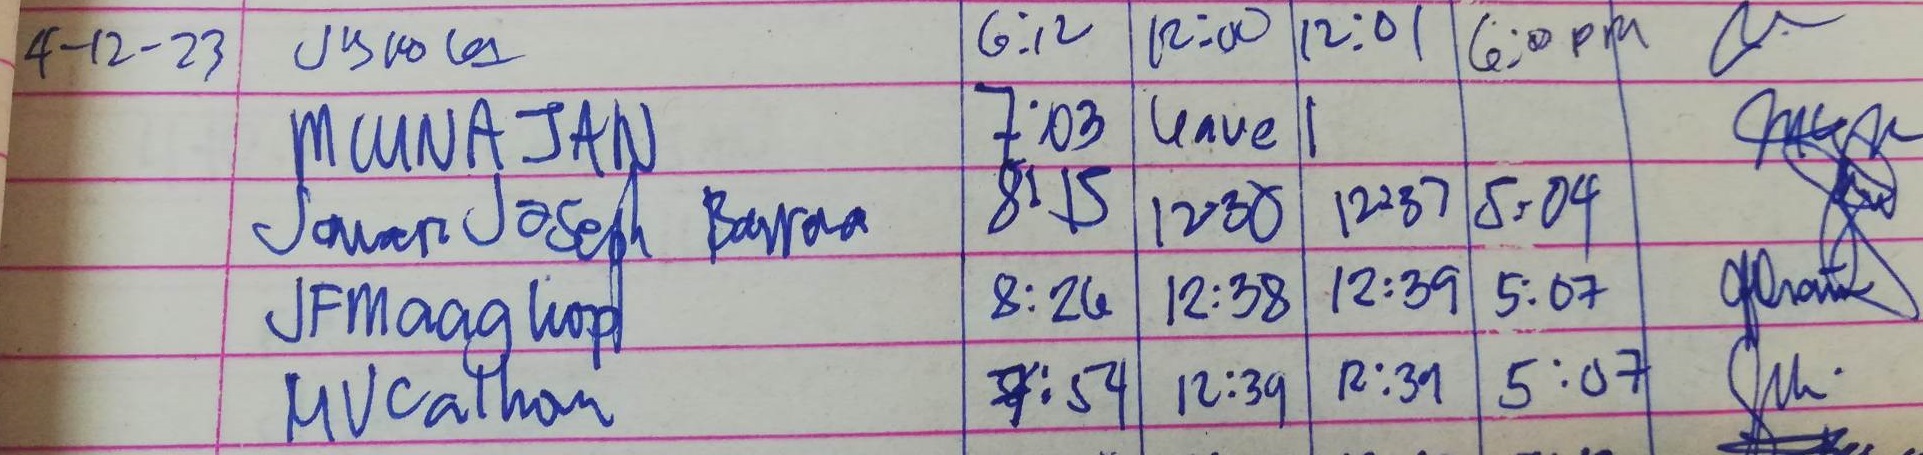 4-12-23 6:12 12:00 12:01 6:00 pm
MWNA JAN 7:03 leave
Joseph Barroa 8:15 12:30 12:37 5:04
JFMaaghop 8:26 12:38 12:39 5:07
MVCathan :54 12:39 12:39 5:07